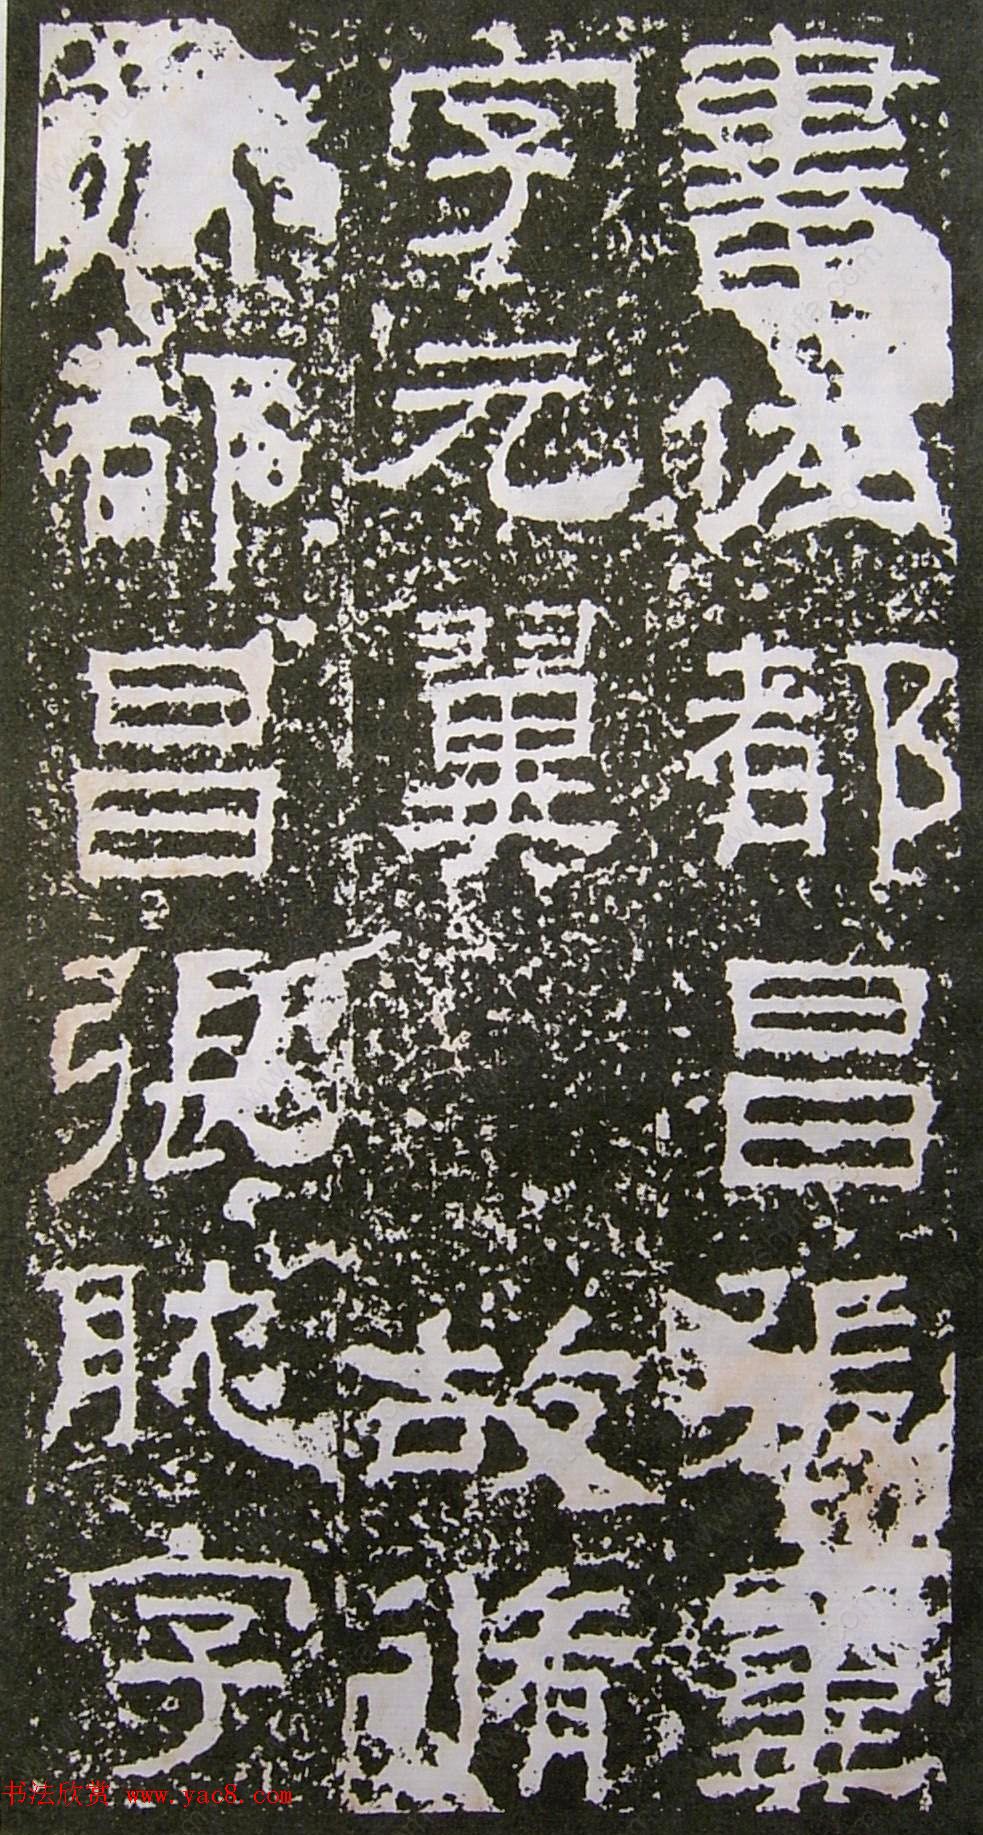 書佐都昌張
字元翼故脩
行都昌張耽字
书法欣赏 www.yac8.com